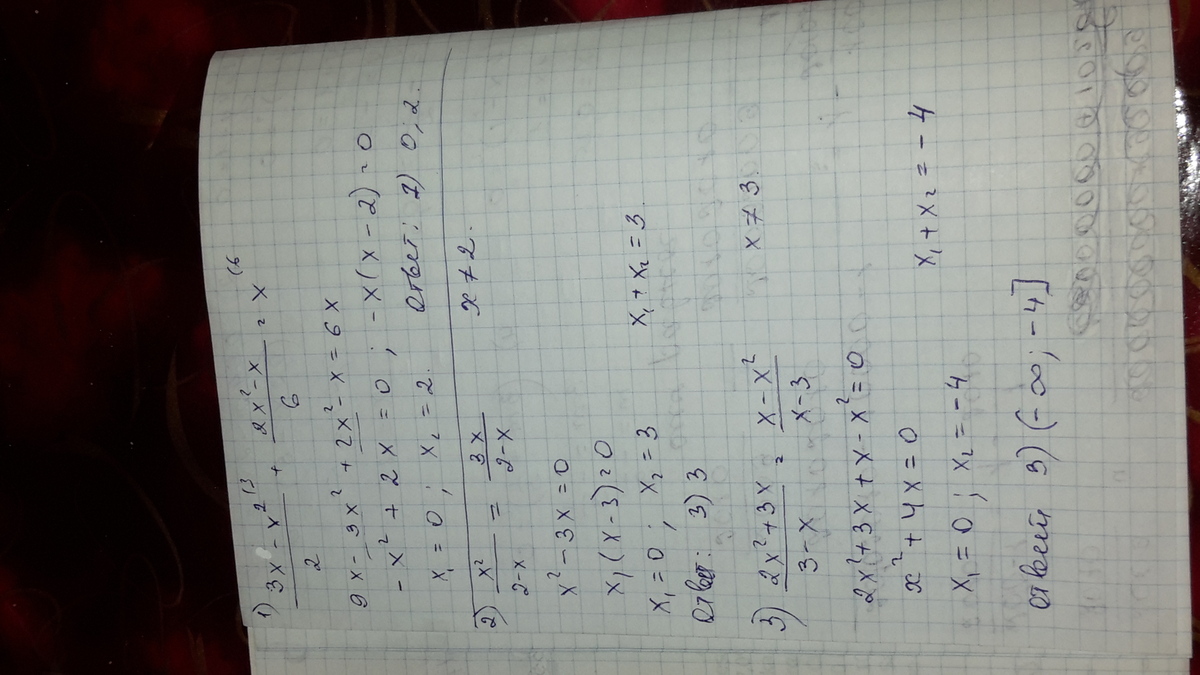 1) (3x - x²)/2 (3 + (2x² - x)/6 = x (6
9x - 3x² + 2x² - x = 6x
-x² + 2x = 0 ; -x(x - 2) = 0
x₁ = 0 ; x₂ = 2. Ответ: 7) 0; 2.
2) x²/(2-x) = 3x/(2-x) x ≠ 2.
x² - 3x = 0
x(x - 3) = 0
x₁ = 0 ; x₂ = 3 x₁ + x₂ = 3
Ответ: 3) 3
3) (2x² + 3x)/(3 - x) = (x - x²)/(x - 3) x ≠ 3.
2x² + 3x + x - x² = 0
x² + 4x = 0
x₁ = 0 ; x₂ = -4 x₁ + x₂ = -4
ответ 3) (-∞; -4]